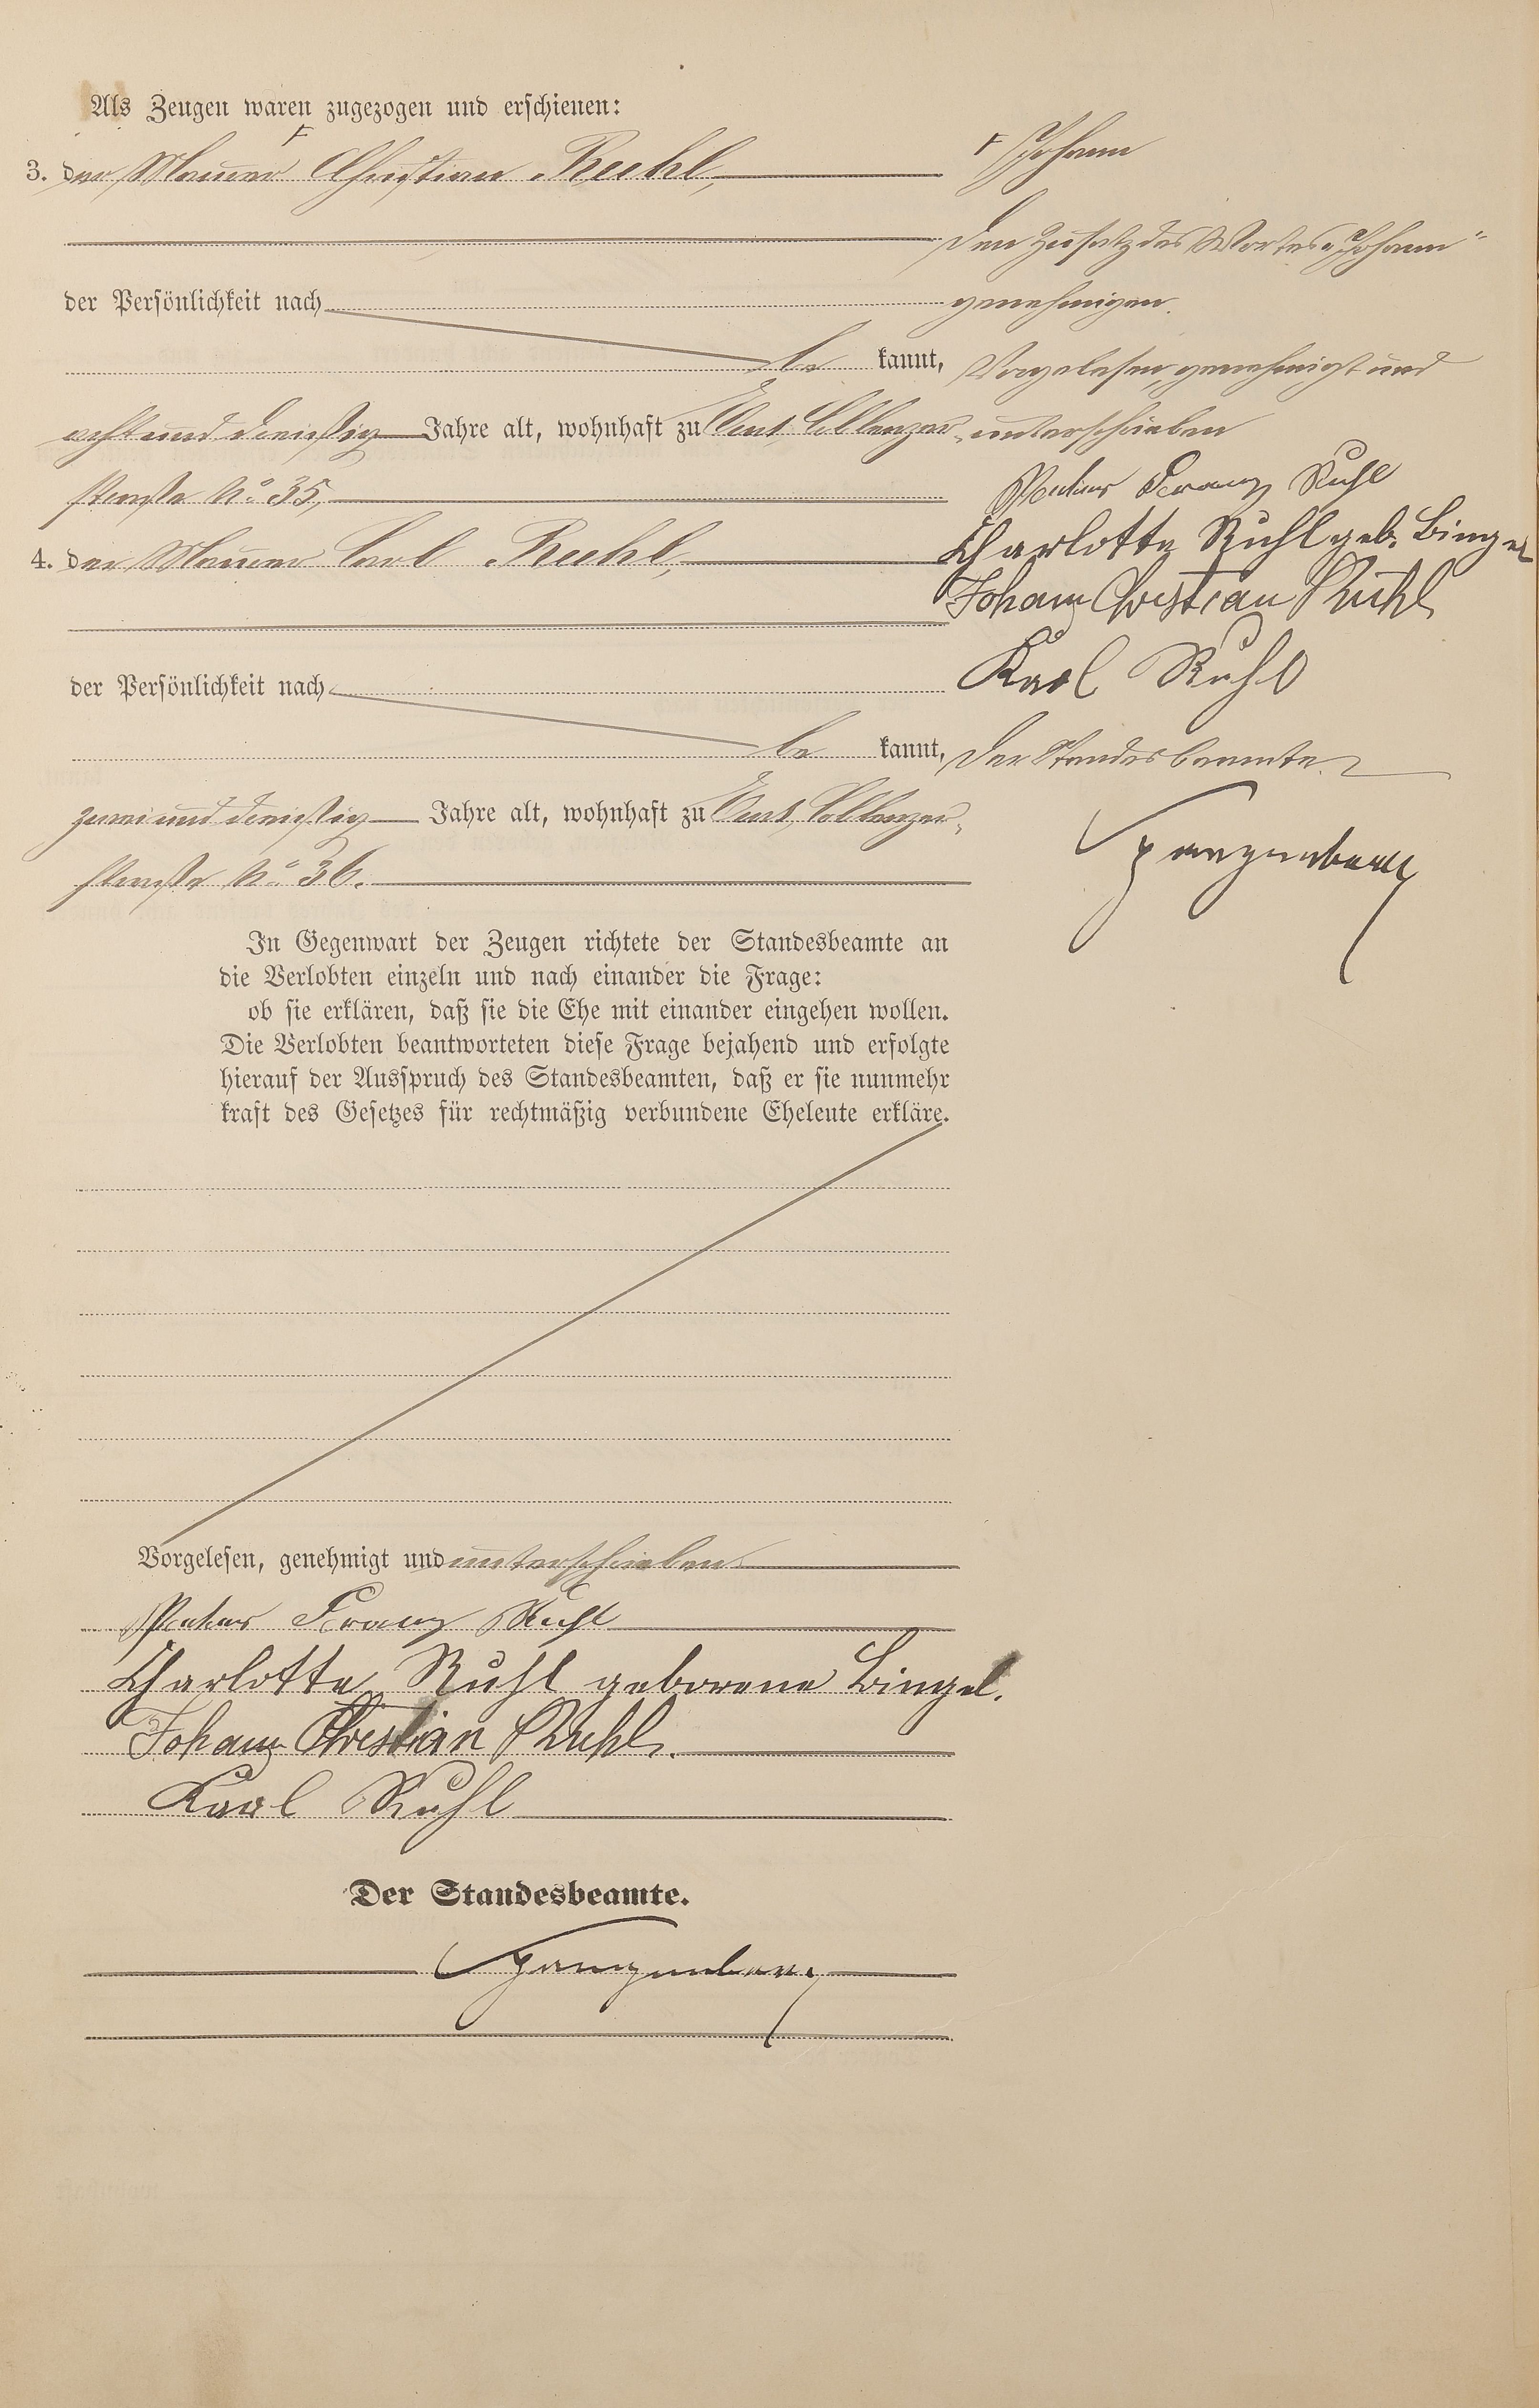 Als Zeugen waren zugezogen und erschienen:
3. der Maurer ⊦ Christian Ruhl,
der Persönlichkeit nach
be kannt,
acht und dreißig Jahre alt, wohnhaft zu Ems, Coblenzer-
straße No. 35,
4. der Maurer Carl Ruhl,
der Persönlichkeit nach
be kannt,
zwei und dreißig Jahre alt, wohnhaft zu Ems, Coblenzer-
straße No. 36.
In Gegenwart der Zeugen richtete der Standesbeamte an
die Verlobten einzeln und nach einander die Frage:
ob sie erklären, daß sie die Ehe mit einander eingehen wollen.
Die Verlobten beantworteten diese Frage bejahend und erfolgte
hierauf der Ausspruch des Standesbeamten, daß er sie nunmehr
kraft des Gesetzes für rechtmäßig verbundene Eheleute erkläre.
Vorgelesen, genehmigt und unterschrieben
Peter Franz Ruhl
Charlotte Ruhl geborene Bingel.
Johann Christian Ruhl.
Karl Ruhl
Der Standesbeamte.
Spangenberg
⊦ Johann
Den Zusatz des Wortes „Johann"
genehmigen.
Vorgelesen, genehmigt und
unterschrieben
Peter Franz Ruhl
Charlotte Ruhl geb. Bingel
Johann Christian Ruhl
Karl Ruhl
Der Standesbeamte.
Spangenberg